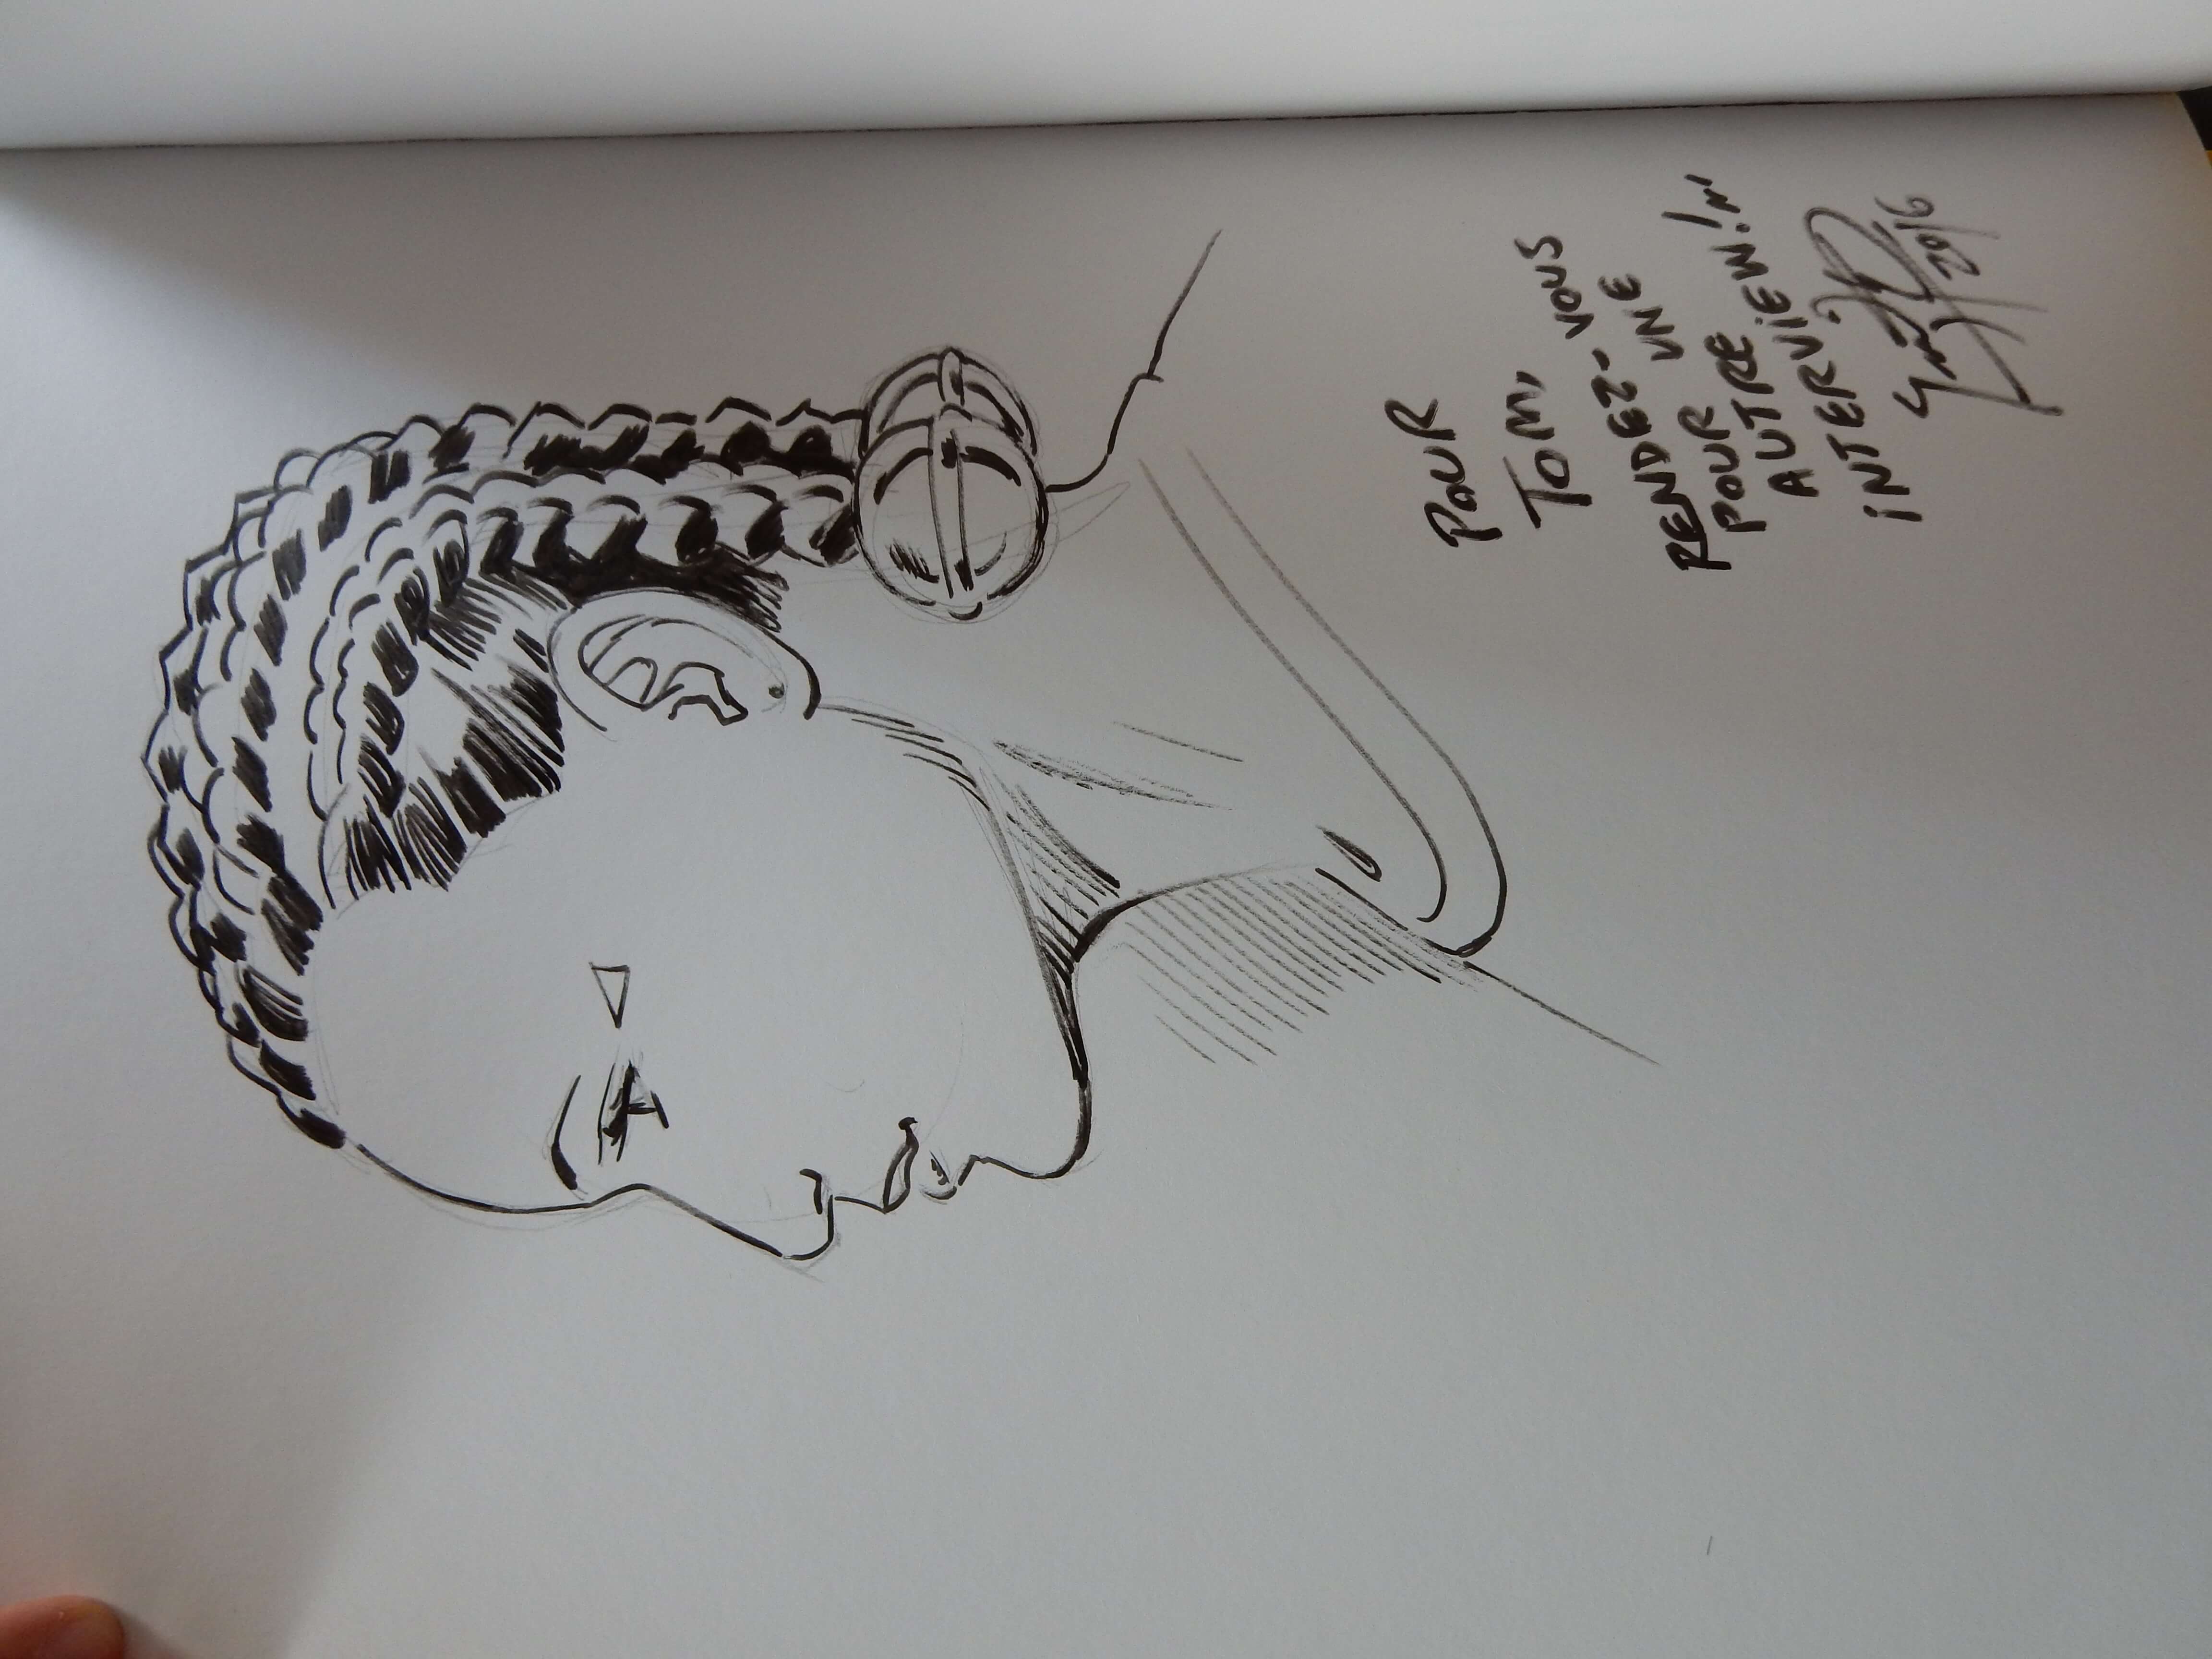 POUR
TOM,
RENDEZ-VOUS
POUR UNE
AUTRE
INTERVIEW!
2016